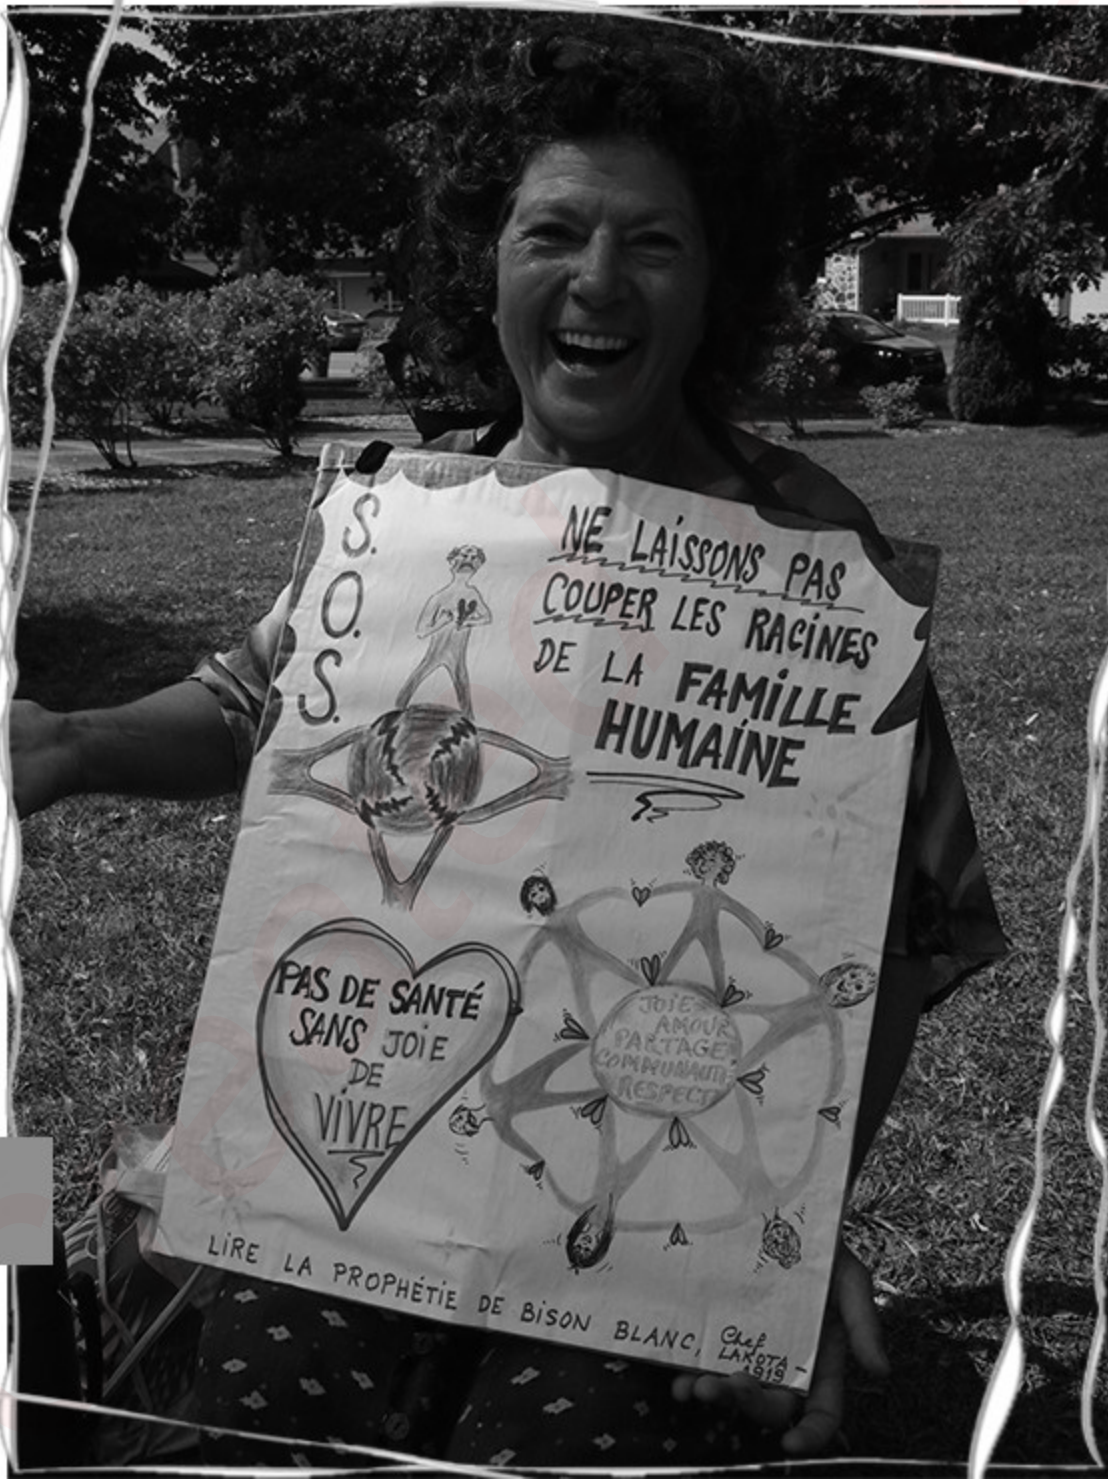 S.
O.
S.
NE LAISSONS PAS
COUPER LES RACINES
DE LA FAMILLE
HUMAINE
PAS DE SANTÉ
SANS JOIE
DE
VIVRE
JOIE
AMOUR
PARTAGE
COMMUNAUTÉ
RESPECT
LIRE LA PROPHÉTIE DE BISON BLANC, Chef
LAKOTA -
1919